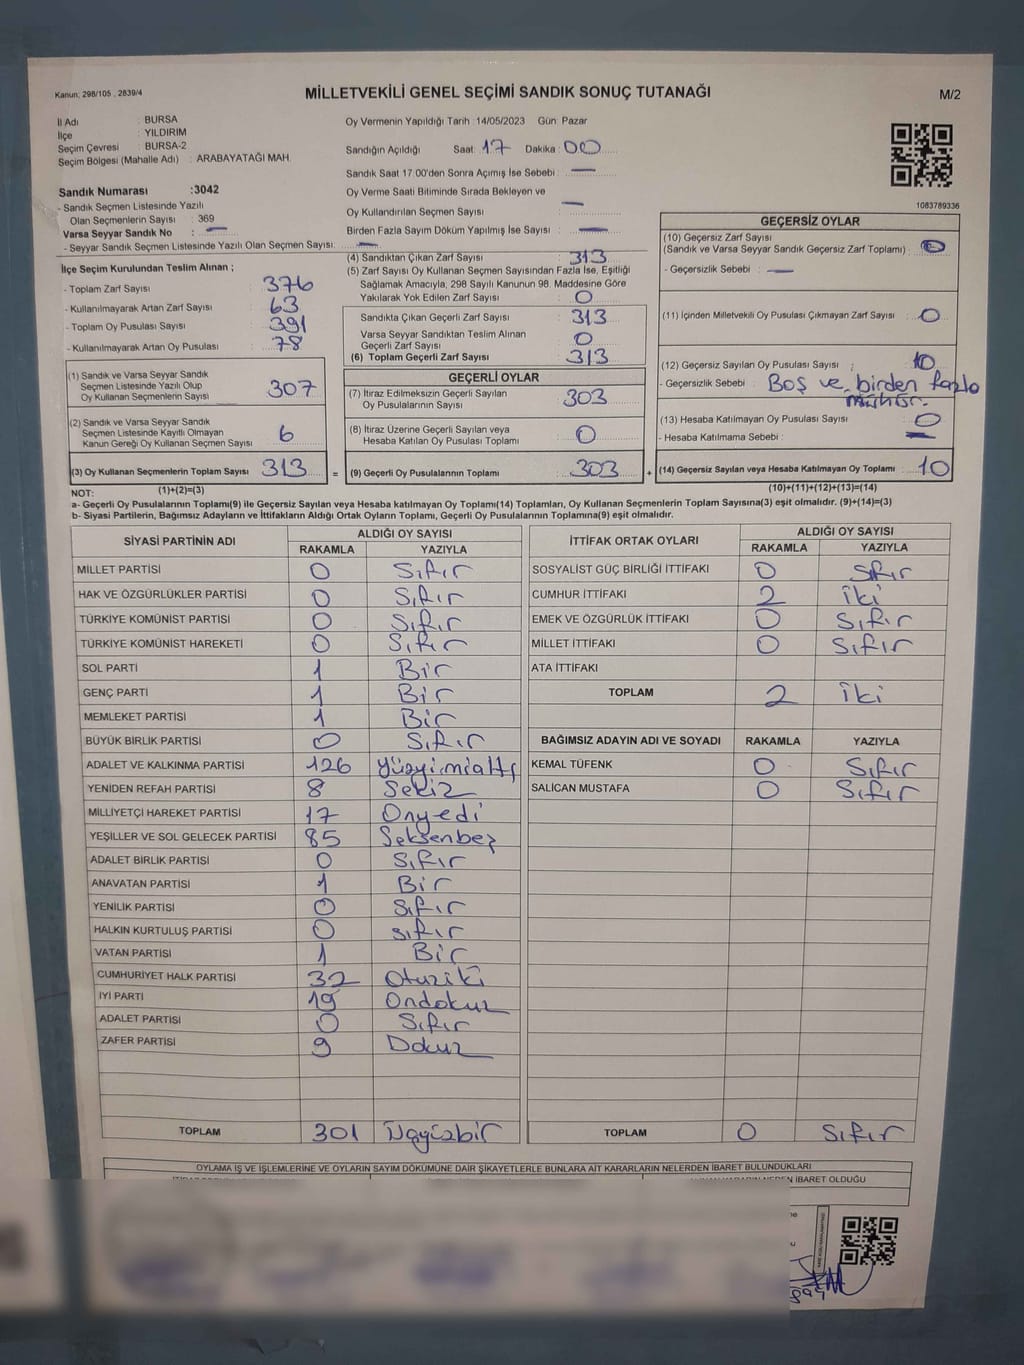 Kanun: 298/105 , 2839/4
MİLLETVEKİLİ GENEL SEÇİMİ SANDIK SONUÇ TUTANAĞI
M/2
İl Adı : BURSA
İlçe : YILDIRIM
Seçim Çevresi : BURSA-2
Seçim Bölgesi (Mahalle Adı) : ARABAYATAĞI MAH.
Sandık Numarası :3042
- Sandık Seçmen Listesinde Yazılı
Olan Seçmenlerin Sayısı : 369
Varsa Seyyar Sandık No : —
- Seyyar Sandık Seçmen Listesinde Yazılı Olan Seçmen Sayısı: —
Oy Vermenin Yapıldığı Tarih : 14/05/2023 Gün: Pazar
Sandığın Açıldığı Saat: 17 Dakika: 00
Sandık Saat 17.00'den Sonra Açımış İse Sebebi: —
Oy Verme Saati Bitiminde Sırada Bekleyen ve
Oy Kullandırılan Seçmen Sayısı : —
Birden Fazla Sayım Döküm Yapılmış İse Sayısı : —
1083789336
İlçe Seçim Kurulundan Teslim Alınan ;
- Toplam Zarf Sayısı : 376
- Kullanılmayarak Artan Zarf Sayısı : 63
- Toplam Oy Pusulası Sayısı : 391
- Kullanılmayarak Artan Oy Pusulası : 78
(1) Sandık ve Varsa Seyyar Sandık
Seçmen Listesinde Yazılı Olup
Oy Kullanan Seçmenlerin Sayısı : 307
(2) Sandık ve Varsa Seyyar Sandık
Seçmen Listesinde Kayıtlı Olmayan
Kanun Gereği Oy Kullanan Seçmen Sayısı : 6
(3) Oy Kullanan Seçmenlerin Toplam Sayısı : 313
(1)+(2)=(3)
(4) Sandıktan Çıkan Zarf Sayısı : 313
(5) Zarf Sayısı Oy Kullanan Seçmen Sayısından Fazla İse, Eşitliği
Sağlamak Amacıyla, 298 Sayılı Kanunun 98. Maddesine Göre
Yakılarak Yok Edilen Zarf Sayısı : 0
Sandıkta Çıkan Geçerli Zarf Sayısı : 313
Varsa Seyyar Sandıktan Teslim Alınan
Geçerli Zarf Sayısı : 0
(6) Toplam Geçerli Zarf Sayısı : 313
GEÇERLİ OYLAR
(7) İtiraz Edilmeksizin Geçerli Sayılan
Oy Pusulalarının Sayısı : 303
(8) İtiraz Üzerine Geçerli Sayılan veya
Hesaba Katılan Oy Pusulası Toplamı : 0
= (9) Geçerli Oy Pusulalarının Toplamı : 303 +
GEÇERSİZ OYLAR
(10) Geçersiz Zarf Sayısı
(Sandık ve Varsa Seyyar Sandık Geçersiz Zarf Toplamı) :
- Geçersizlik Sebebi : —
(11) İçinden Milletvekili Oy Pusulası Çıkmayan Zarf Sayısı : 0
(12) Geçersiz Sayılan Oy Pusulası Sayısı : 10
- Geçersizlik Sebebi : Boş ve birden fazla
mühür.
(13) Hesaba Katılmayan Oy Pusulası Sayısı : 0
- Hesaba Katılmama Sebebi : —
(14) Geçersiz Sayılan veya Hesaba Katılmayan Oy Toplamı : 10
(10)+(11)+(12)+(13)=(14)
NOT:
a- Geçerli Oy Pusulalarının Toplamı(9) ile Geçersiz Sayılan veya Hesaba katılmayan Oy Toplamı(14) Toplamları, Oy Kullanan Seçmenlerin Toplam Sayısına(3) eşit olmalıdır. (9)+(14)=(3)
b- Siyasi Partilerin, Bağımsız Adayların ve İttifakların Aldığı Ortak Oyların Toplamı, Geçerli Oy Pusulalarının Toplamına(9) eşit olmalıdır.
SİYASİ PARTİNİN ADI ALDIĞI OY SAYISI
RAKAMLA YAZIYLA
MİLLET PARTİSİ 0 Sıfır
HAK VE ÖZGÜRLÜKLER PARTİSİ 0 Sıfır
TÜRKİYE KOMÜNİST PARTİSİ 0 Sıfır
TÜRKİYE KOMÜNİST HAREKETİ 0 Sıfır
SOL PARTİ 1 Bir
GENÇ PARTİ 1 Bir
MEMLEKET PARTİSİ 1 Bir
BÜYÜK BİRLİK PARTİSİ 0 Sıfır
ADALET VE KALKINMA PARTİSİ 126 Yüzyirmialtı
YENİDEN REFAH PARTİSİ 8 Sekiz
MİLLİYETÇİ HAREKET PARTİSİ 17 Onyedi
YEŞİLLER VE SOL GELECEK PARTİSİ 85 Seksenbeş
ADALET BİRLİK PARTİSİ 0 Sıfır
ANAVATAN PARTİSİ 1 Bir
YENİLİK PARTİSİ 0 Sıfır
HALKIN KURTULUŞ PARTİSİ 0 sıfır
VATAN PARTİSİ 1 Bir
CUMHURİYET HALK PARTİSİ 32 Otuziki
İYİ PARTİ 19 Ondokuz
ADALET PARTİSİ 0 Sıfır
ZAFER PARTİSİ 9 Dokuz
TOPLAM 301 Üçyüzbir
İTTİFAK ORTAK OYLARI ALDIĞI OY SAYISI
RAKAMLA YAZIYLA
SOSYALİST GÜÇ BİRLİĞİ İTTİFAKI 0 Sıfır
CUMHUR İTTİFAKI 2 İki
EMEK VE ÖZGÜRLÜK İTTİFAKI 0 Sıfır
MİLLET İTTİFAKI 0 Sıfır
ATA İTTİFAKI
TOPLAM 2 İki
BAĞIMSIZ ADAYIN ADI VE SOYADI RAKAMLA YAZIYLA
KEMAL TÜFENK 0 Sıfır
SALİCAN MUSTAFA 0 Sıfır
TOPLAM 0 Sıfır
OYLAMA İŞ VE İŞLEMLERİNE VE OYLARIN SAYIM DÖKÜMÜNE DAİR ŞİKAYETLERLE BUNLARA AİT KARARLARIN NELERDEN İBARET BULUNDUKLARI
İBARET OLDUĞU